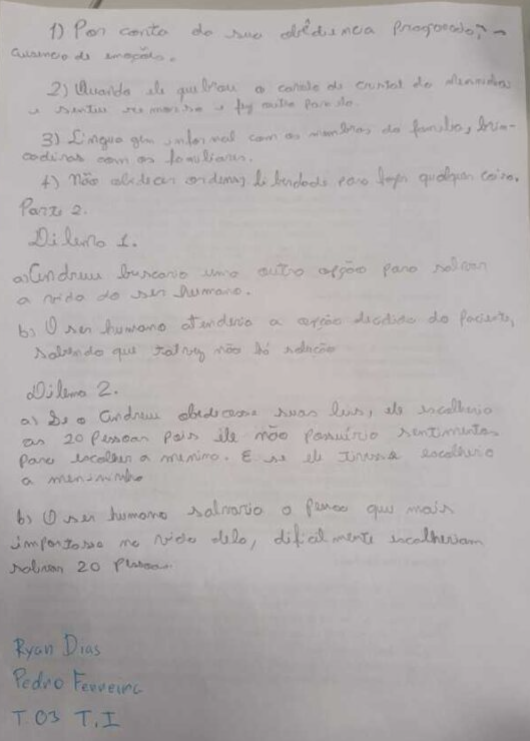 1) Por conta da sua obediencia programada,
ausencia de emoção.
2) Quando ele quebrou o cavalo de cristal da menininha
e sentiu remorso e fez outro para ela.
3) Linguagem informal com os membros da familia, brin-
cadeiras com os familiares.
4) Não obedecer ordens, liberdade para fazer qualquer coisa.
Parte 2.
Dilema 1.
a) Andrew buscaria uma outra opção para salvar
a vida do ser humano.
b) O ser humano atenderia a opção decidida do paciente,
sabendo que talvez não há solução
Dilema 2.
a) Se o Andrew obedecesse suas leis, ele escolheria
as 20 pessoas pois ele não possuiria sentimentos
para escolher a menina. E se ele tivesse escolheria
a menininha
b) O ser humano salvaria a pessoa que mais
importasse na vida dela, dificilmente escolheriam
salvar 20 pessoas.
Ryan Dias
Pedro Ferreira
T. 03 T.I